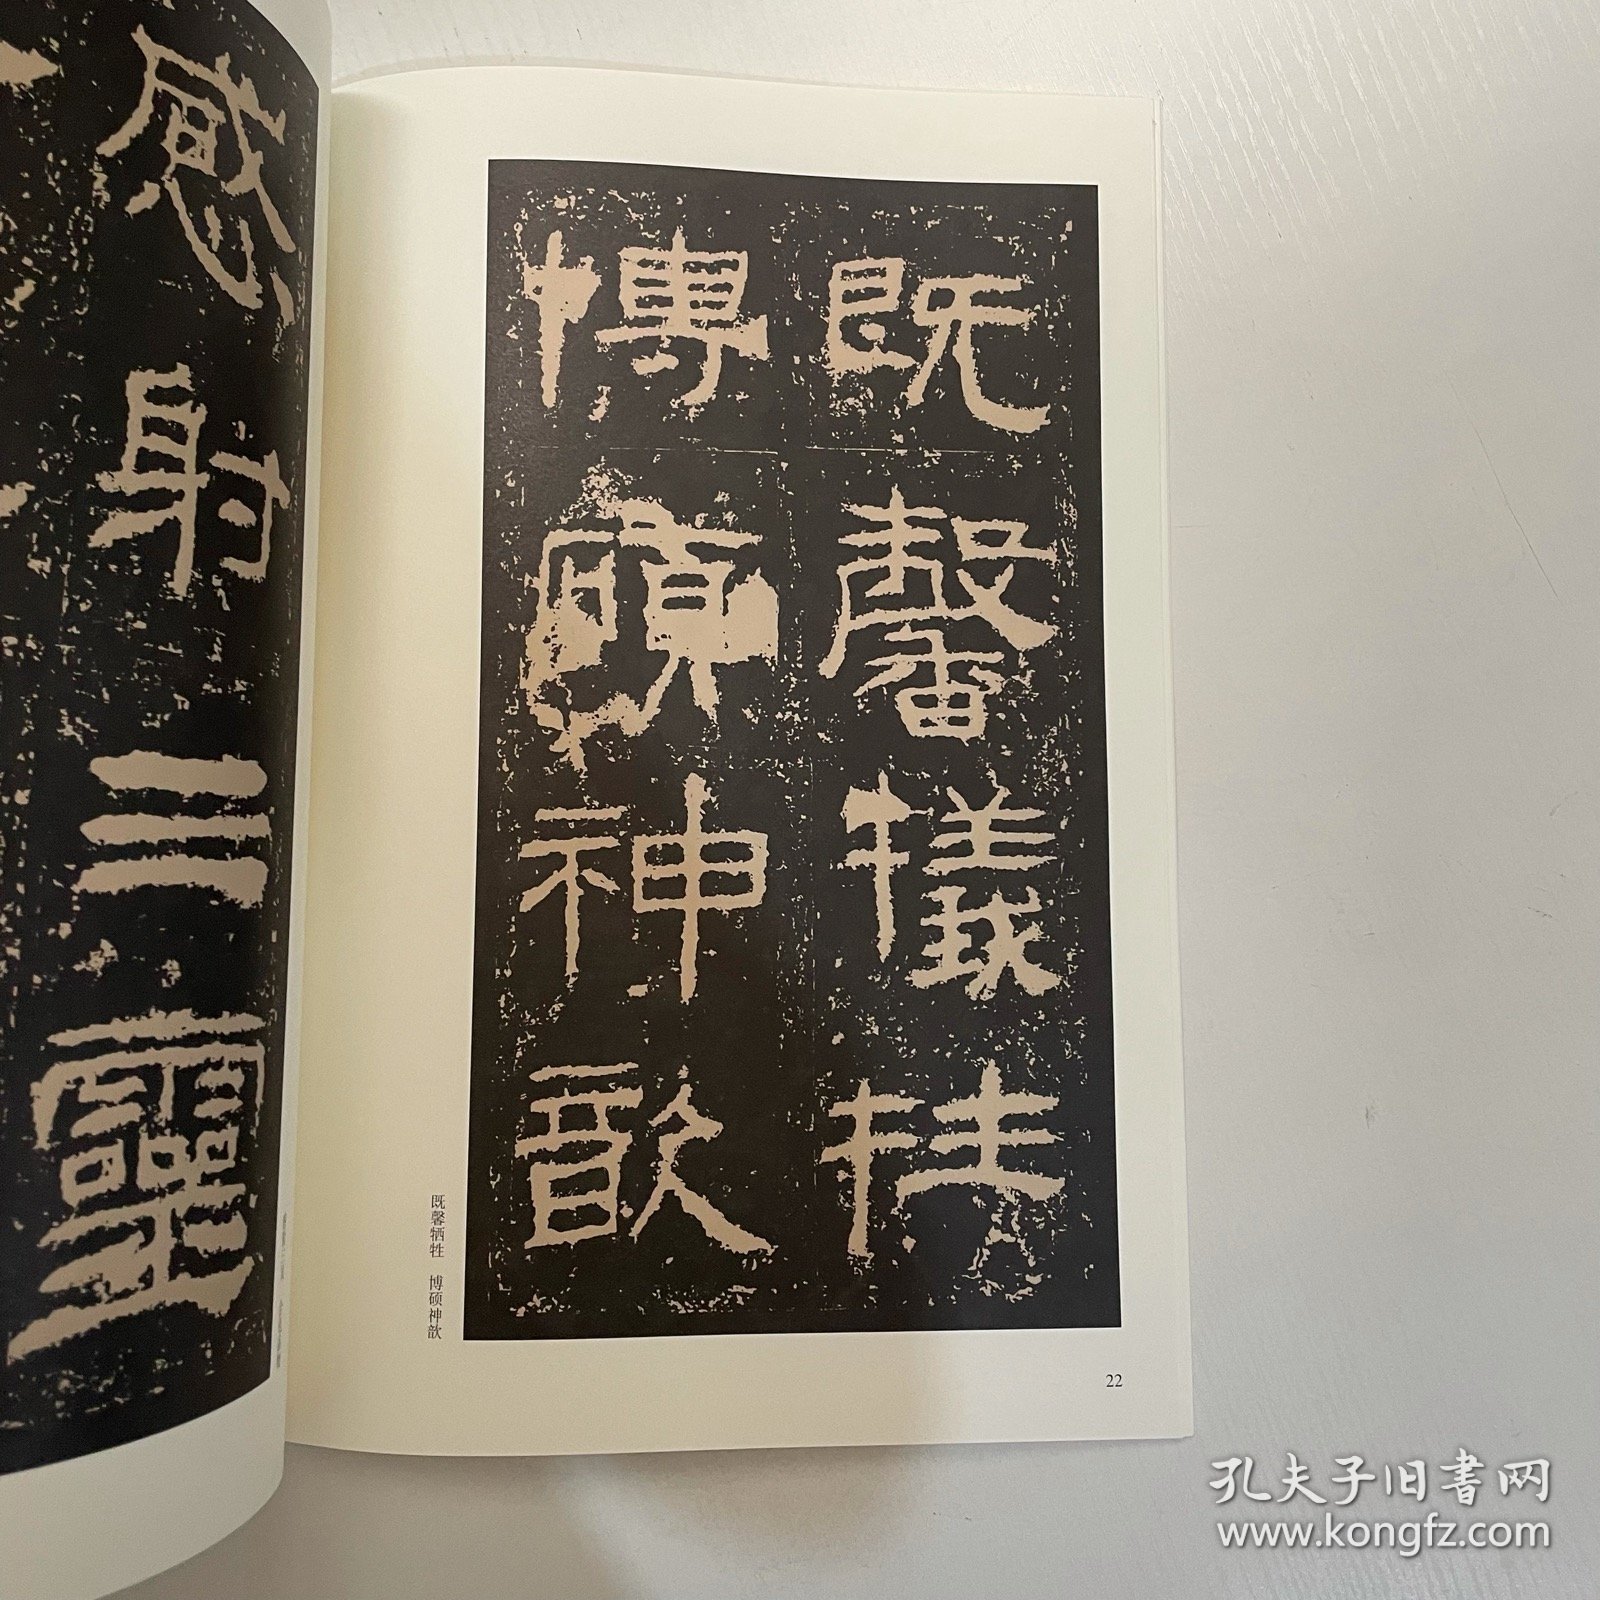 既馨犧牲
博碩神歆
既馨牺牲　博硕神歆
22
感射三靈
孔夫子旧书网
www.kongfz.com